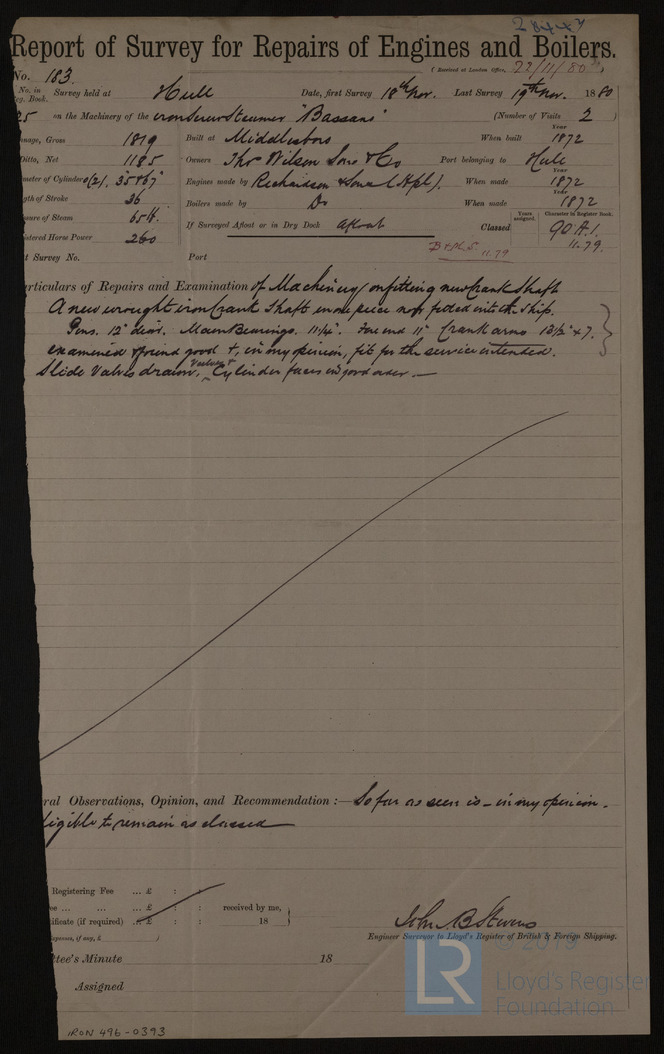 28447
Report of Survey for Repairs of Engines and Boilers.
(Received at London Office, 22/11/80
No. 183
No. in Survey held at Hull Date, first Survey 18th Nov. Last Survey 19th Nov. 1880
g. Book.
25 on the Machinery of the iron Screw Steamer "Bassano" (Number of Visits 2 )
nnage, Gross 1819 Built at Middlesboro When built Year 1872
Ditto, Net 1185 Owners Thos Wilson Sons & Co Port belonging to Hull
meter of Cylinders (2). 35" & 67" Engines made by Richardson & Sons (Hpl). When made Year 1872
gth of Stroke 36 Boilers made by Do When made Year 1872
ssure of Steam 65 lb. If Surveyed Afloat or in Dry Dock Afloat Classed Years assigned. Character in Register Book. 90 A.1.
istered Horse Power 260 B&MS 11.79 11.79.
t Survey No. Port
rticulars of Repairs and Examination of Machinery on fitting new Crank Shaft
A new wrought iron Crank Shaft in one piece now fitted into the Ship.
Pins. 12" diar. Main Bearings. 11 1/4". Fore end 11" Crank arms 13 1/2" x 7.
examined & found good & in my opinion, fit for the service intended.
Slide Valves drawn, Valves & Cylinder faces in good order. —
ral Observations, Opinion, and Recommendation :— So far as seen is - in my opinion -
ligible to remain as classed
Registering Fee ... £ : :
ee ... ... ... £ : : received by me,
tificate (if required) .. £ : : 18
Expenses, if any, £ )
John B Stevens
Engineer Surveyor to Lloyd's Register of British & Foreign Shipping.
ttee's Minute 18
Assigned
© 2019
LR
Lloyd's Register
Foundation
IRON 496-0393